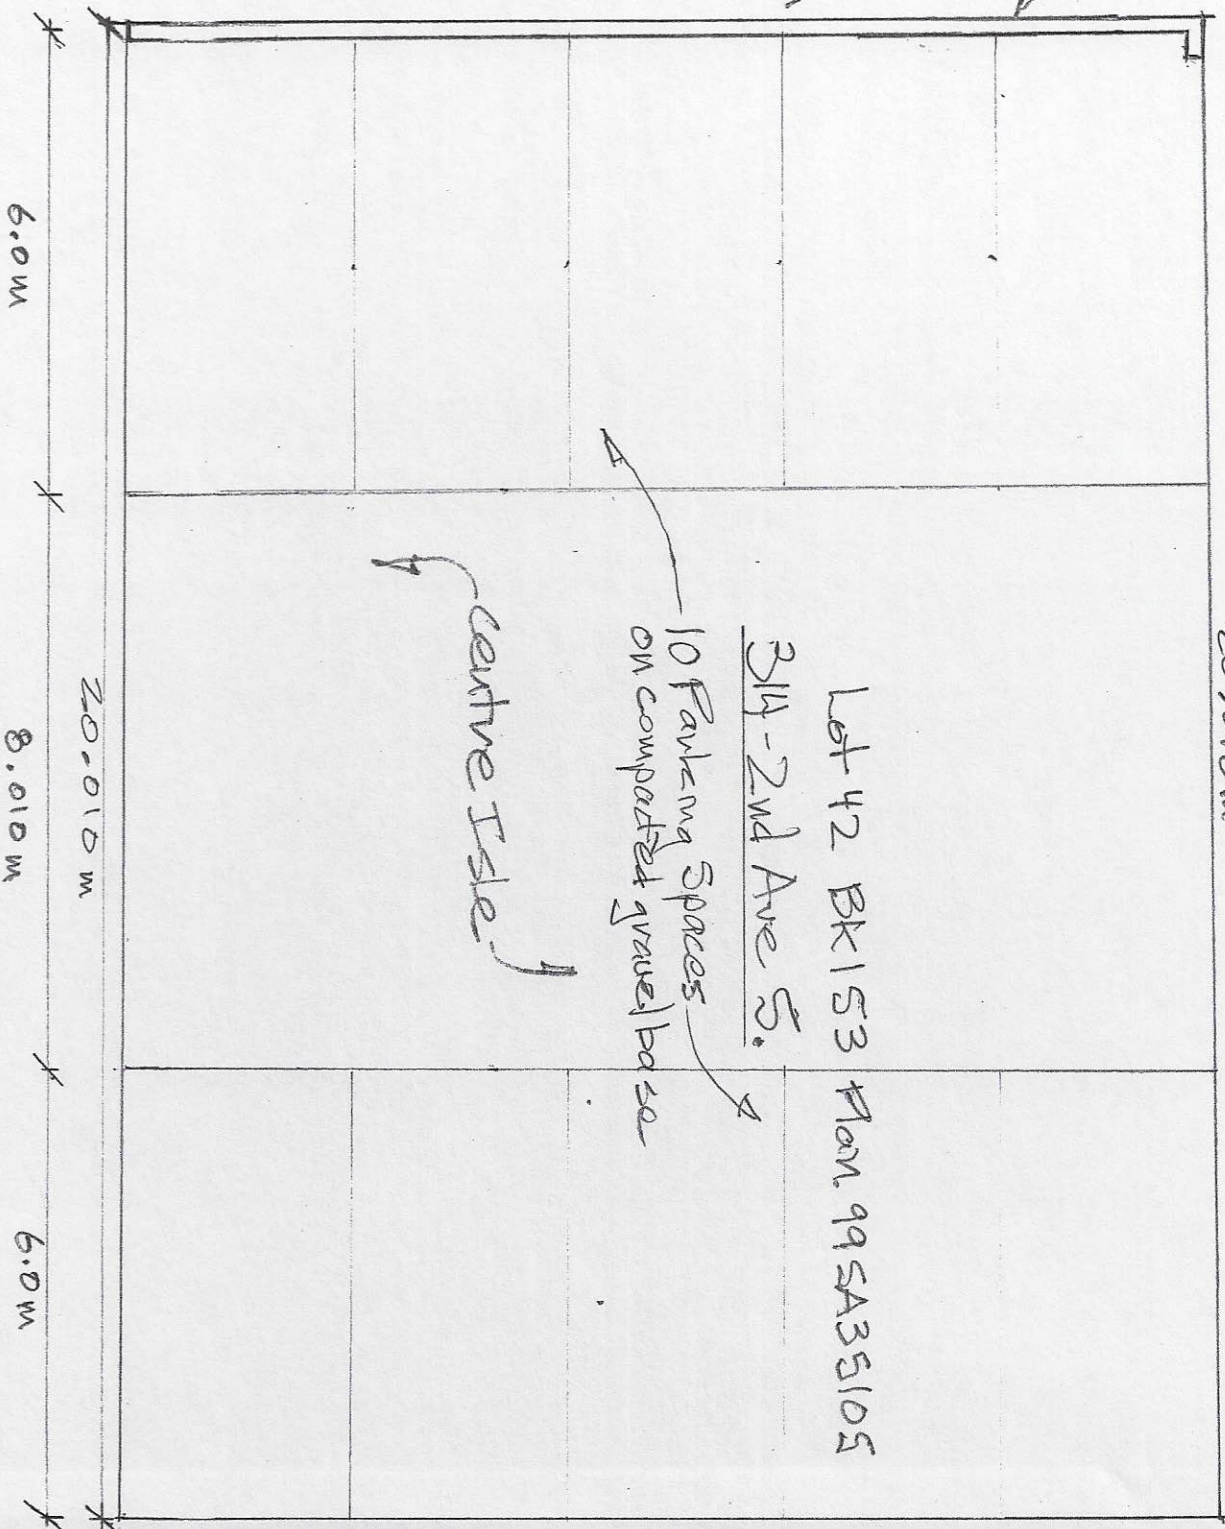 Lot 42 BK 153 Plan. 99SA35105
314-2nd Ave S.
10 Parking Spaces
on compacted gravel base
Centre Isle
20.010 m
6.0m
8.010 m
6.0m